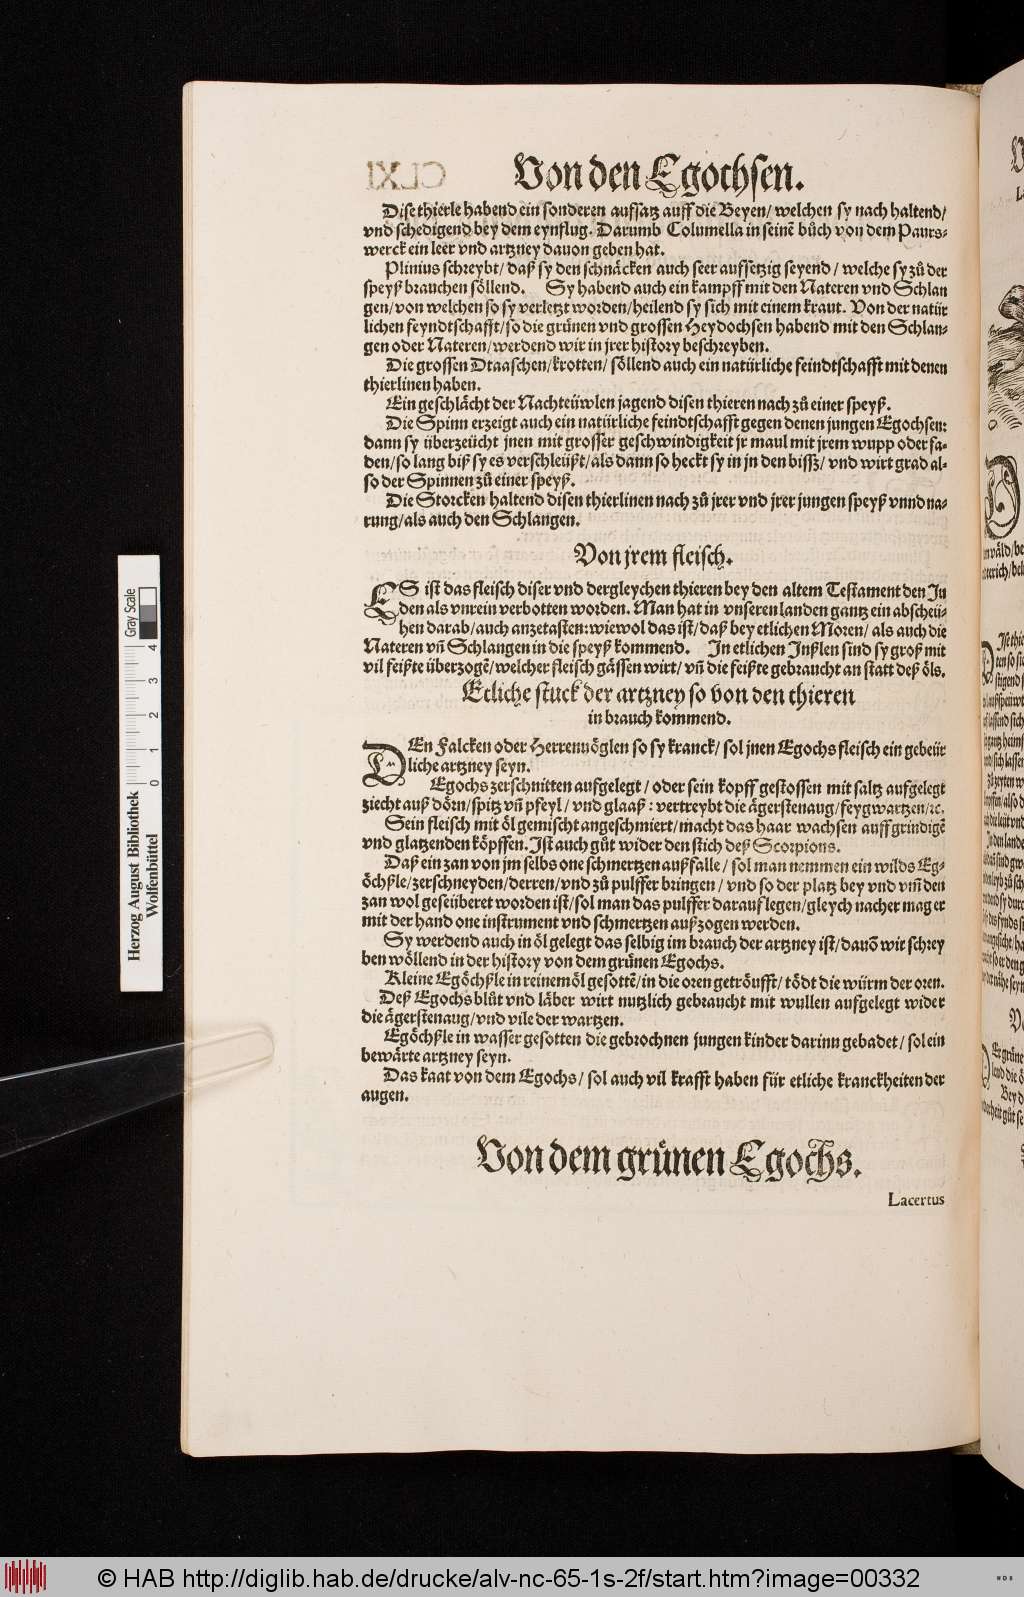 Von den Egochsen.
Dise thierle habend ein sonderen aufsatz auff die Beyen/ welchen sy nach haltend/
vnd schedigend bey dem eynflug. Darumb Columella in seinē bůch von dem Paurs⸗
werck ein leer vnd artzney dauon geben hat.
Plinius schreybt/ daß sy den schnäcken auch seer aufsetzig seyend / welche sy zů der
speyß brauchen söllend. Sy habend auch ein kampff mit den Nateren vnd Schlan
gen/von welchen so sy verletzt worden/heilend sy sich mit einem kraut. Von der natür
lichen feyndtschafft/so die grünen vnd grossen Heydochsen habend mit den Schlan⸗
gen oder Nateren/werdend wir in jrer history beschreyben.
Die grossen Dtaaschen/krotten/ söllend auch ein natürliche feindtschafft mit denen
thierlinen haben.
Ein geschlächt der Nachteüwlen jagend disen thieren nach zů einer speyß.
Die Spinn erzeigt auch ein natürliche feindtschafft gegen denen jungen Egochsen:
dann sy überzeücht jnen mit grosser geschwindigkeit jr maul mit jrem wupp oder fa⸗
den/so lang biß sy es verschleüßt/als dann so heckt sy in jn den bissz/ vnd wirt grad al⸗
so der Spinnen zů einer speyß.
Die Storcken haltend disen thierlinen nach zů jrer vnd jrer jungen speyß vnnd na⸗
rung/als auch den Schlangen.
Von jrem fleisch.
ES ist das fleisch diser vnd dergleychen thieren bey den altem Testament den Ju
den als vnrein verbotten worden. Man hat in vnseren landen gantz ein abscheü⸗
hen darab/auch anzetasten:wiewol das ist/daß bey etlichen Moren/ als auch die
Nateren vñ Schlangen in die speyß kommend. In etlichen Inßlen sind sy groß mit
vil feißte überzogē/welcher fleisch gässen wirt/ vñ die feißte gebraucht an statt deß öls.
Etliche stuck der artzney so von den thieren
in brauch kommend.
DEn Falcken oder Herrenuöglen so sy kranck/ sol jnen Egochs fleisch ein gebeür
liche artzney seyn.
Egochs zerschnitten aufgelegt / oder sein kopff gestossen mit saltz aufgelegt
ziecht auß dörn/spitz vñ pfeyl / vnd glaaß : vertreybt die ägerstenaug/feygwartzen/ꝛc.
Sein fleisch mit öl gemischt angeschmiert/macht das haar wachsen auff grindigē
vnd glatzenden köpffen. Ist auch gůt wider den stich deß Scorpions.
Daß ein zan von jm selbs one schmertzen außfalle / sol man nemmen ein wilds Eg⸗
öchßle/zerschneyden/derren/vnd zů pulffer bringen / vnd so der platz bey vnd vm̃ den
zan wol geseüberet worden ist/sol man das pulffer darauf legen/gleych nacher mag er
mit der hand one instrument vnd schmertzen außzogen werden.
Sy werdend auch in öl gelegt das selbig im brauch der artzney ist/dauō wir schrey
ben wöllend in der history von dem grünen Egochs.
Kleine Egöchßle in reinem öl gesottē/in die oren getröufft/ tödt die würm der oren.
Deß Egochs blůt vnd läber wirt nutzlich gebraucht mit wullen aufgelegt wider
die ägerstenaug/vnd vile der wartzen.
Egöchßle in wasser gesotten die gebrochnen jungen kinder darinn gebadet/ sol ein
bewärte artzney seyn.
Das kaat von dem Egochs/ sol auch vil krafft haben für etliche kranckheiten der
augen.
Von dem grünen Egochs.
Lacertus
Herzog August Bibliothek
Wolfenbüttel
Gray Scale
0 1 2 3 4
© HAB http://diglib.hab.de/drucke/alv-nc-65-1s-2f/start.htm?image=00332